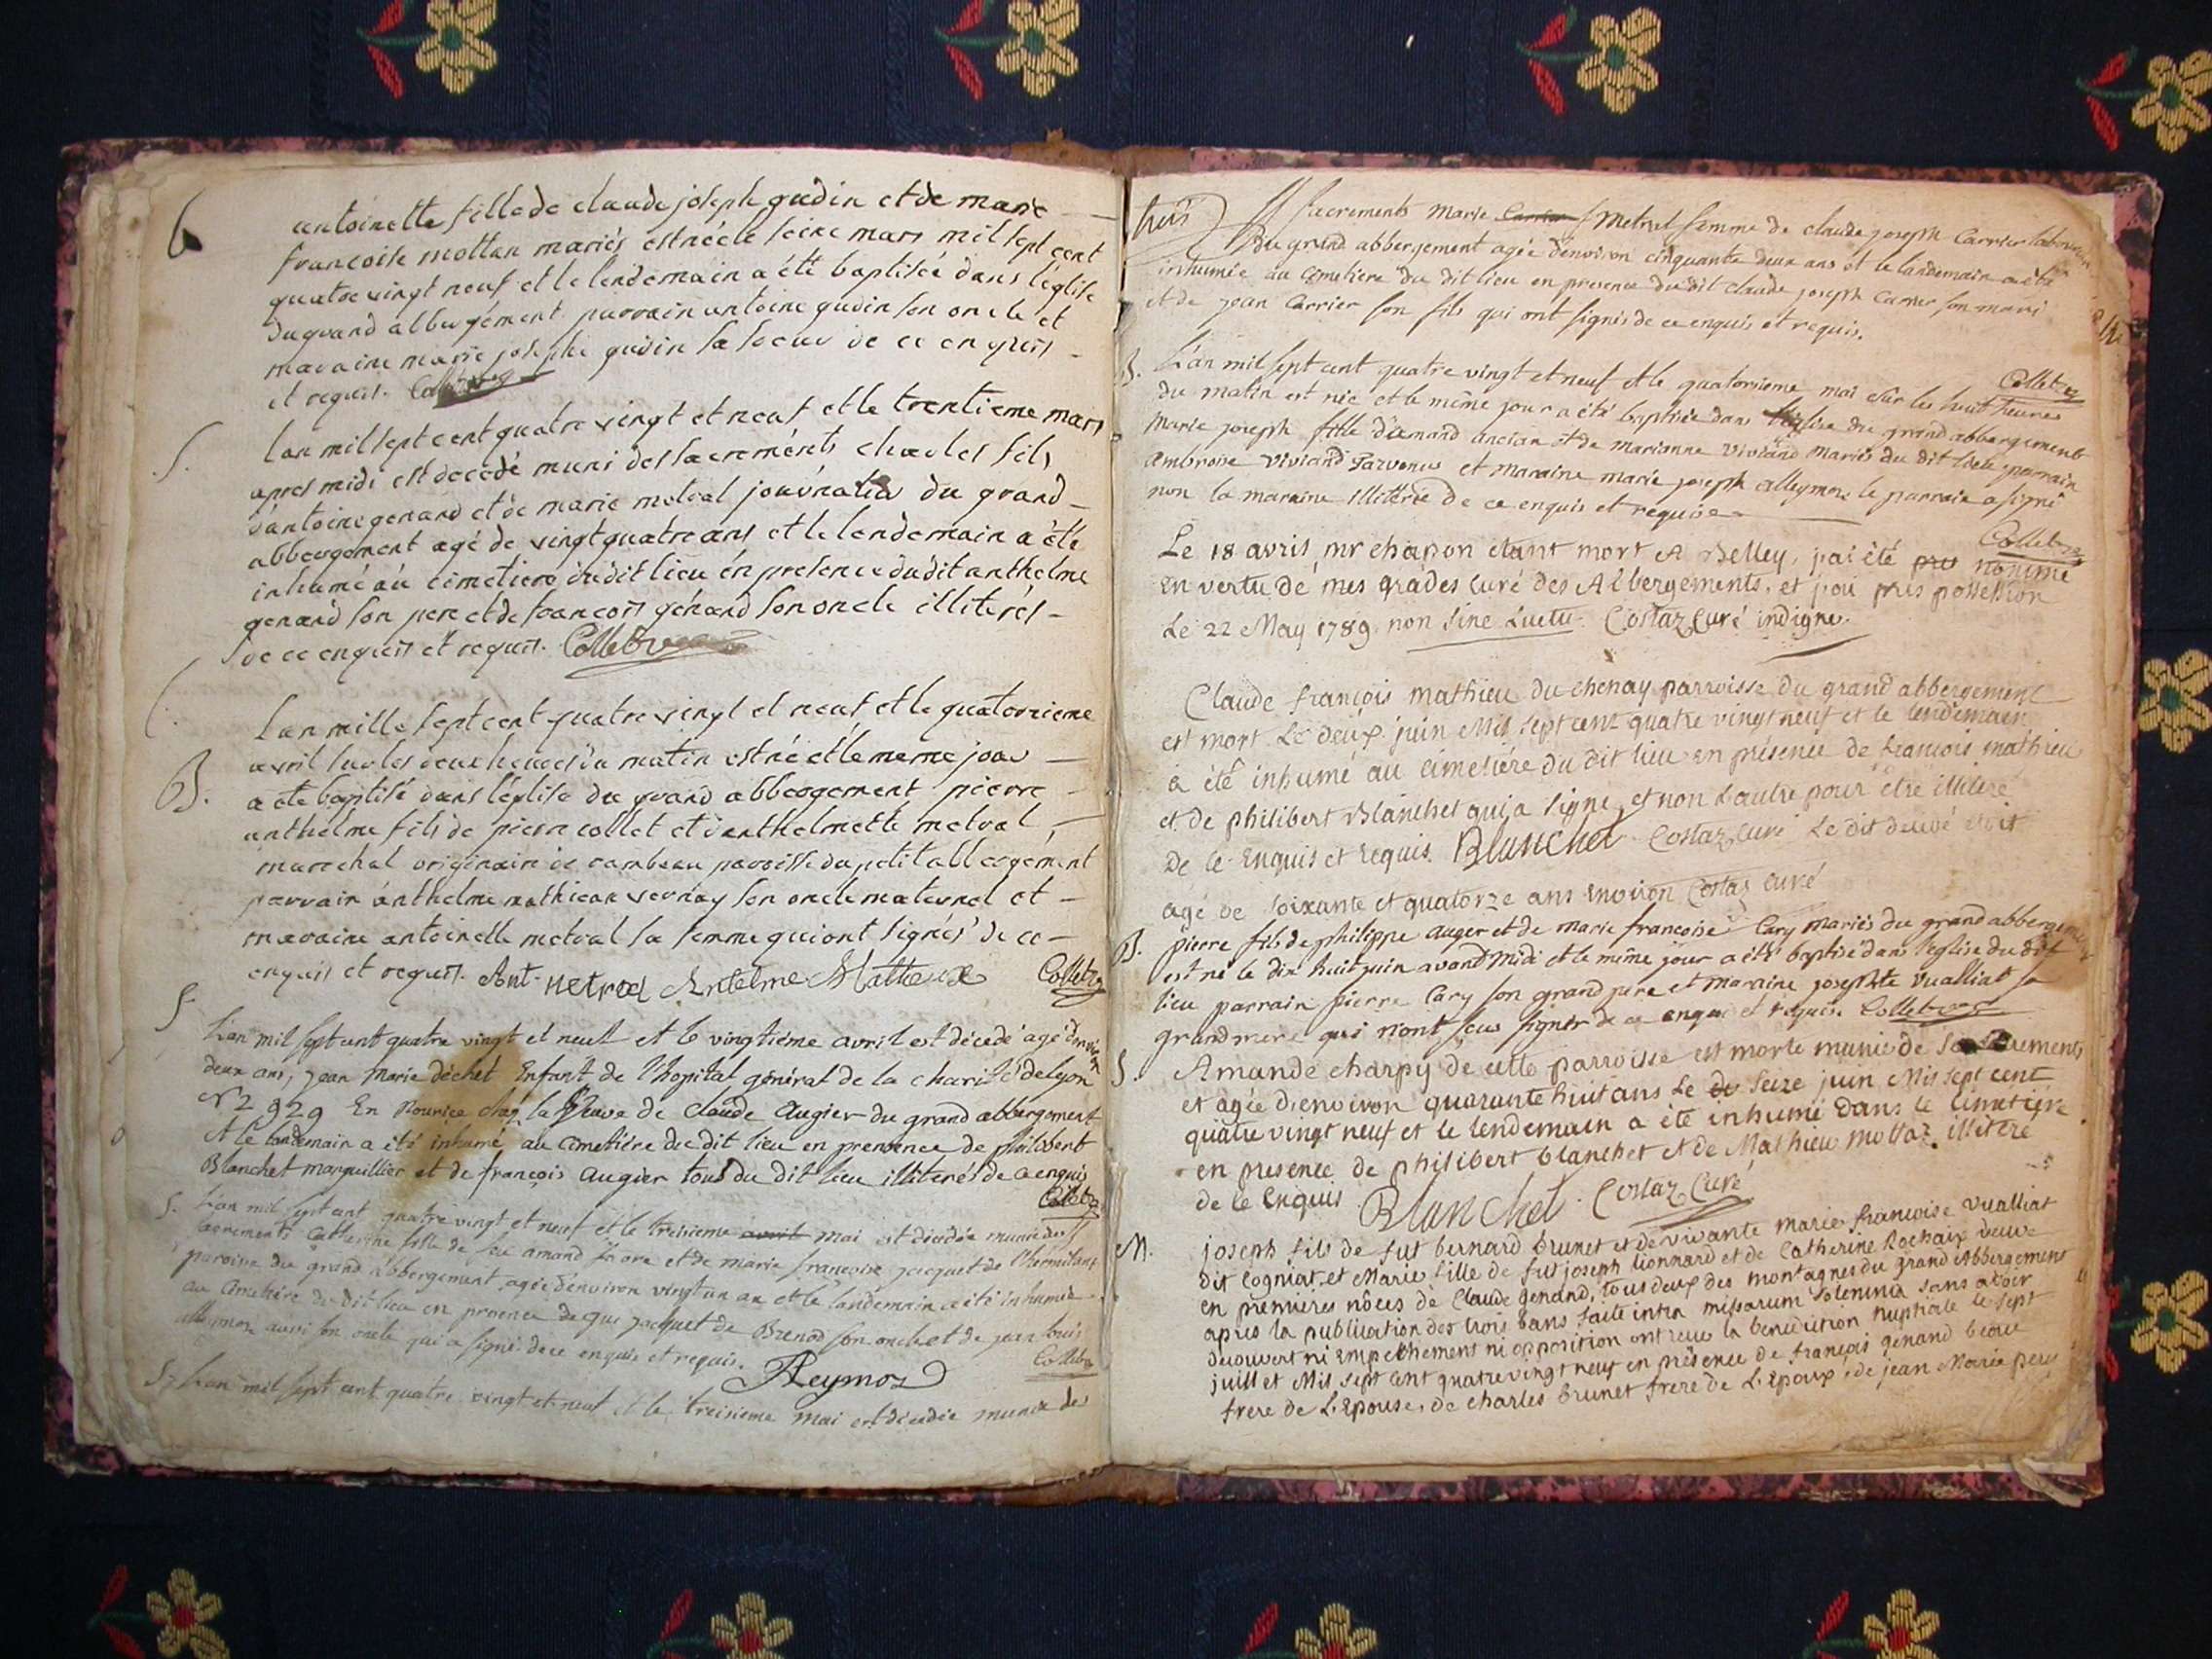 b
antoinette fille de claude joseph gudin et de marie
francoise mottan mariés est née le seize mars mil sept cent
quatre vingt neuf et le lendemain a été baptisée dans l'église
du grand abbergément parrain antoine gudin son oncle et
maraine marie josephe gudin sa soeur de ce enquis
et requis. Colletraz
S. l'an mil sept cent quatre vingt et neuf et le trentieme mars
apres midi est décédé muni des sacreménts charles fils
d'antoine genand et de marie metral journalier du grand
abbergement agé de vingt quatre ans et le lendemain a été
inhumé au cimetiere du dit lieu én presence du dit anthelme
genand son pere et de francois génand son oncle illiterés
de ce enquis et requis. Colletraz
B. L'an mille sept cent quatre vingt et neuf et le quatorzieme
avril sur les heures du matin est né et le meme jour
a été baptisé dans l'eglise du grand abbergement pierre
anthelme fils de pierre collet et d'anthelmette metral,
marechal originaire de parroisse du petit abbergément
parrain ànthelme mathieu vernay son oncle maternel et
maraine antoinette metral sa femme qui ont signés de ce
enquis et requis. Ant. metral Antelme Matthieu Colletraz
S L'an mil sept cent quatre vingt et neuf et le vingtiéme avril est décedé agé d'environ
deux ans, jean marie déchet Enfant de l'hopital général de la charité de lyon
N° 2929 En Nourice chez la Veuve de Claude augier du grand abbergement
et le landemain a été inhumé au cimetiére du dit lieu en presence de philibert
Blanchet marguillier et de françois augier tous du dit lieu illiterés de ce enquis
Colletraz
S. L'an mil sept cent quatre vingt et neuf et le treisieme avril mai est décédée munie des
sacrements Catherine fille de feu amand et de marie françoise jacquet de l'hermitane
paroisse du grand abbergement agée d'environ vingt un an et le landemain a été inhumée
au cimetiére du dit lieu en presence de jacquet de Brenod son oncle et de jean louis
alleymoz aussi son oncle qui a signé de ce enquis et requis. Colletraz
Aleymoz
S. L'an mil sept cent quatre vingt et neuf et le treisieme mai est décédée munie des
trois
sacrements Marie Carrier Metral femme de claude joseph Carrier laboureur
du grand abbergement agée d'environ cinquante deux ans et le landemain a été
inhumée au cimetiere du dit lieu en presence du dit claude joseph Carrier son mari
et de jean Carrier son fils qui ont signés de ce enquis et requis.
Colletraz
B. L'an mil sept cent quatre vingt et neuf et le quatorsieme mai sur les huit heures
du matin est née et le même jour a été baptisée dans l'église du grand abbergement
Marie joseph fille d'amand ancian et de marianne viviand mariés du dit lieu parrain
ambroise viviand et maraine marie joseph alleymoz le parrain a signé
non la maraine illiterée de ce enquis et requise
Colletraz
Le 18 avril mr chapon etant mort A Belley, j'ai été nommé
En vertu de mes grades curé des Albergements, et j'ai pris possession
Le 22 May 1789. non sine Luctu. Costaz Curé indigne.
Claude françois mathieu du chenay parroisse du grand abbergement
est mort Le deux juin Mil sept cent quatre vingt neuf et le lendemain
à été inhumé au cimetiére du dit lieu en présence de françois mathieu
et de philibert Blanchet qui a signé, et non L'autre pour être illiteré
de ce Enquis et requis. Blanchet Costaz Curé Le dit décédé étoit
agé de soixante et quatorze ans environ Costaz Curé
B. pierre fils de philippe auger et de marie francoise Cary mariés du grand abbergement
est né le dix huit juin avant midi et le même jour a été baptisé dans l'eglise du dit
lieu parrain pierre Cary son grand pere et maraine josephte vualliat sa
grand mere qui n'ont seu signer de ce enquis et requis. Colletraz
S. Amande charpy de cette parroisse est morte munie de ses sacrements
et agée d'environ quarante huit ans Le seize juin Mil sept cent
quatre vingt neuf et le lendemain a été inhumé dans le cimetiére
en presence de philibert blanchet et de Mathieu mottaz illiteré
de ce Enquis Blanchet Costaz Curé
M. joseph fils de fut bernard brunet et de vivante marie françoise vualliat
dit Cogniat, et Marie fille de fut joseph Lionnard et de Catherine Rochaix veuve
en premieres nôces de Claude genand, tous deux des montagnes du grand Abbergement
après la publication des trois bans faite intra missarum solemnia sans avoir
decouvert ni Empechement ni opposition ont reçu la benediction nuptiale le sept
juillet Mil sept cent quatre vingt neuf en présence de françois genand beau
frere de L'Epouse, de charles brunet frere de L'Epoux, de jean Marie